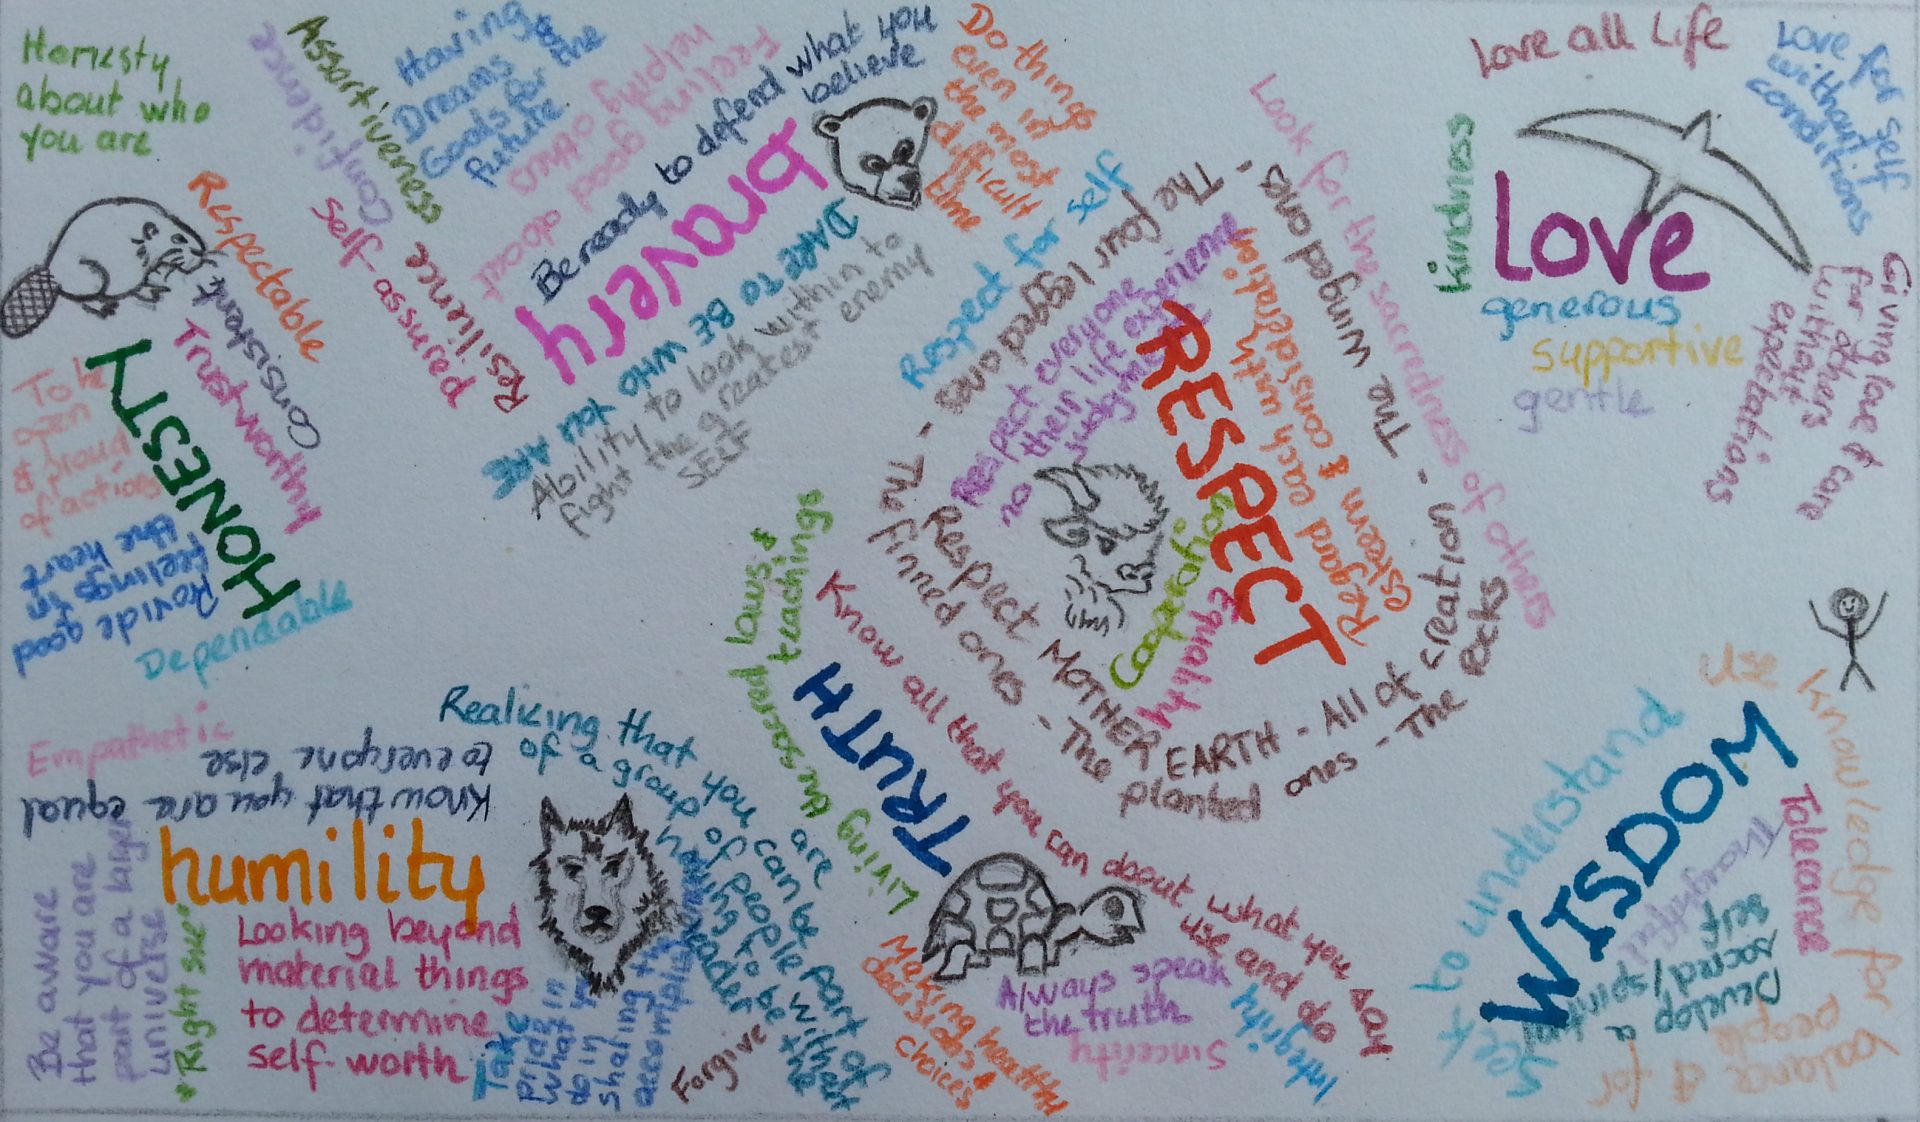 Honesty
about who
you are
Respectable
Consistent
Trustworthy
HONESTY
To be
open
& proud
of actions
Provide good
feelings in
the heart
Dependable
Confidence
Assortiveness
Having
Dreams &
Goals for the
future
Feeling good about
helping others
Self-assured
Resilience
Be ready to defend what you
believe
bravery
DARE TO BE WHO YOU ARE
Ability to look within to
fight the greatest enemy
SELF
Do things
even in
the most
difficult
time
Respect for self
The four legged ones - The winged ones - All of creation - The rocks
The finned ones - The planted ones
Respect MOTHER EARTH
Respect everyone
their life experience
no judgments
RESPECT
Regard each with
esteem & consideration
Cooperation
Equality
Look for the sacredness of others
Love all Life
Love for self
without
conditions
kindness
Love
generous
supportive
gentle
Giving love & care
for others
without
expectations
Empathetic
Know that you are equal
to everyone else
humility
Be aware
that you are
part of a larger
universe
"Right size"
Looking beyond
material things
to determine
self-worth
Realizing that you can be part of
of a group of people without
having to be the
leader
Take
pride in
what
Forgive
Living the sacred laws &
teachings
TRUTH
Know all that you can about what you say
use and do
Making health
decisions &
choices
Always speak
the truth
Sincerity
Integrity
Seek to understand
WISDOM
Use knowledge for
balance & for
people
Tolerance
Thoughtful
Develop a
sacred/spiritual
self